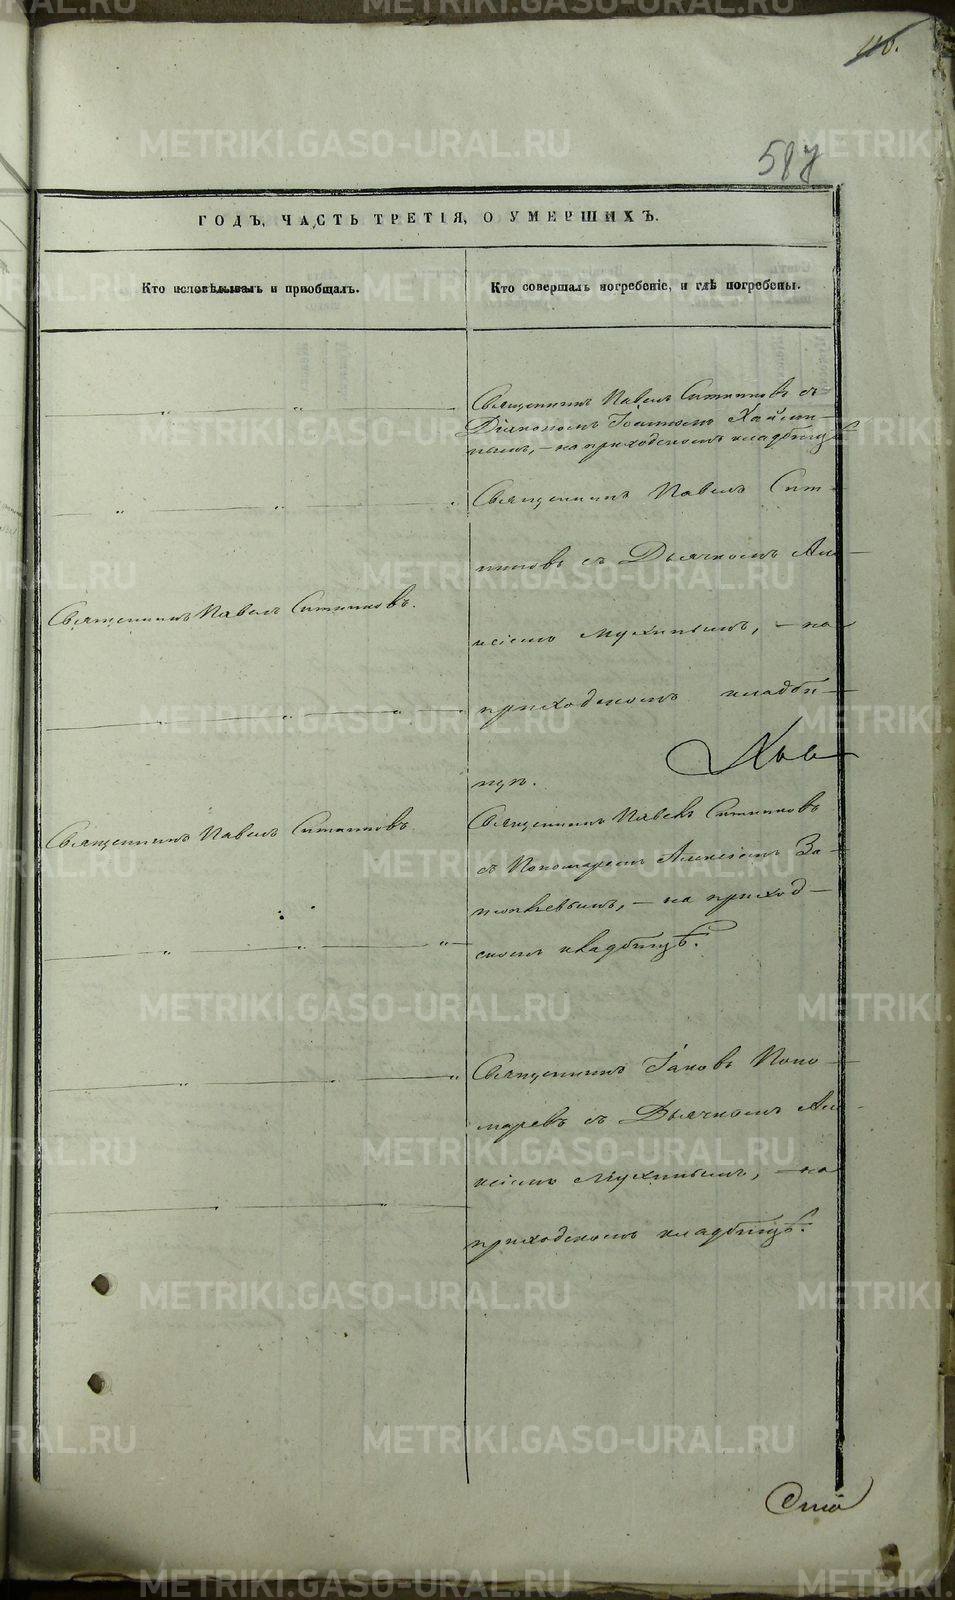 116.
587
ГОДЪ, ЧАСТЬ ТРЕТІЯ, О УМЕРШИХЪ.
Кто исповѣдывалъ и пріобщалъ.
Кто совершалъ погребеніе, и гдѣ погребены.
Священникъ Павелъ Ситниковъ съ
Діакономъ Іоанномъ
нымъ, – на приходскомъ кладбищѣ
Священникъ Павелъ Сит–
никовъ съ Дьячкомъ Але–
Священникъ Павелъ Ситниковъ.
ксіемъ Мухинымъ, – на
приходскомъ кладби–
щѣ.
Священникъ Павелъ Ситниковъ
Священникъ Павелъ Ситниковъ
съ Пономаремъ Алексіемъ За–
– на приход–
скомъ кладбищѣ.
Священникъ Іаковъ Поно–
маревъ съ Дьячкомъ Але–
ксіемъ Мухинымъ, – на
приходскомъ кладбищѣ.
METRIKI.GASO-URAL.RU